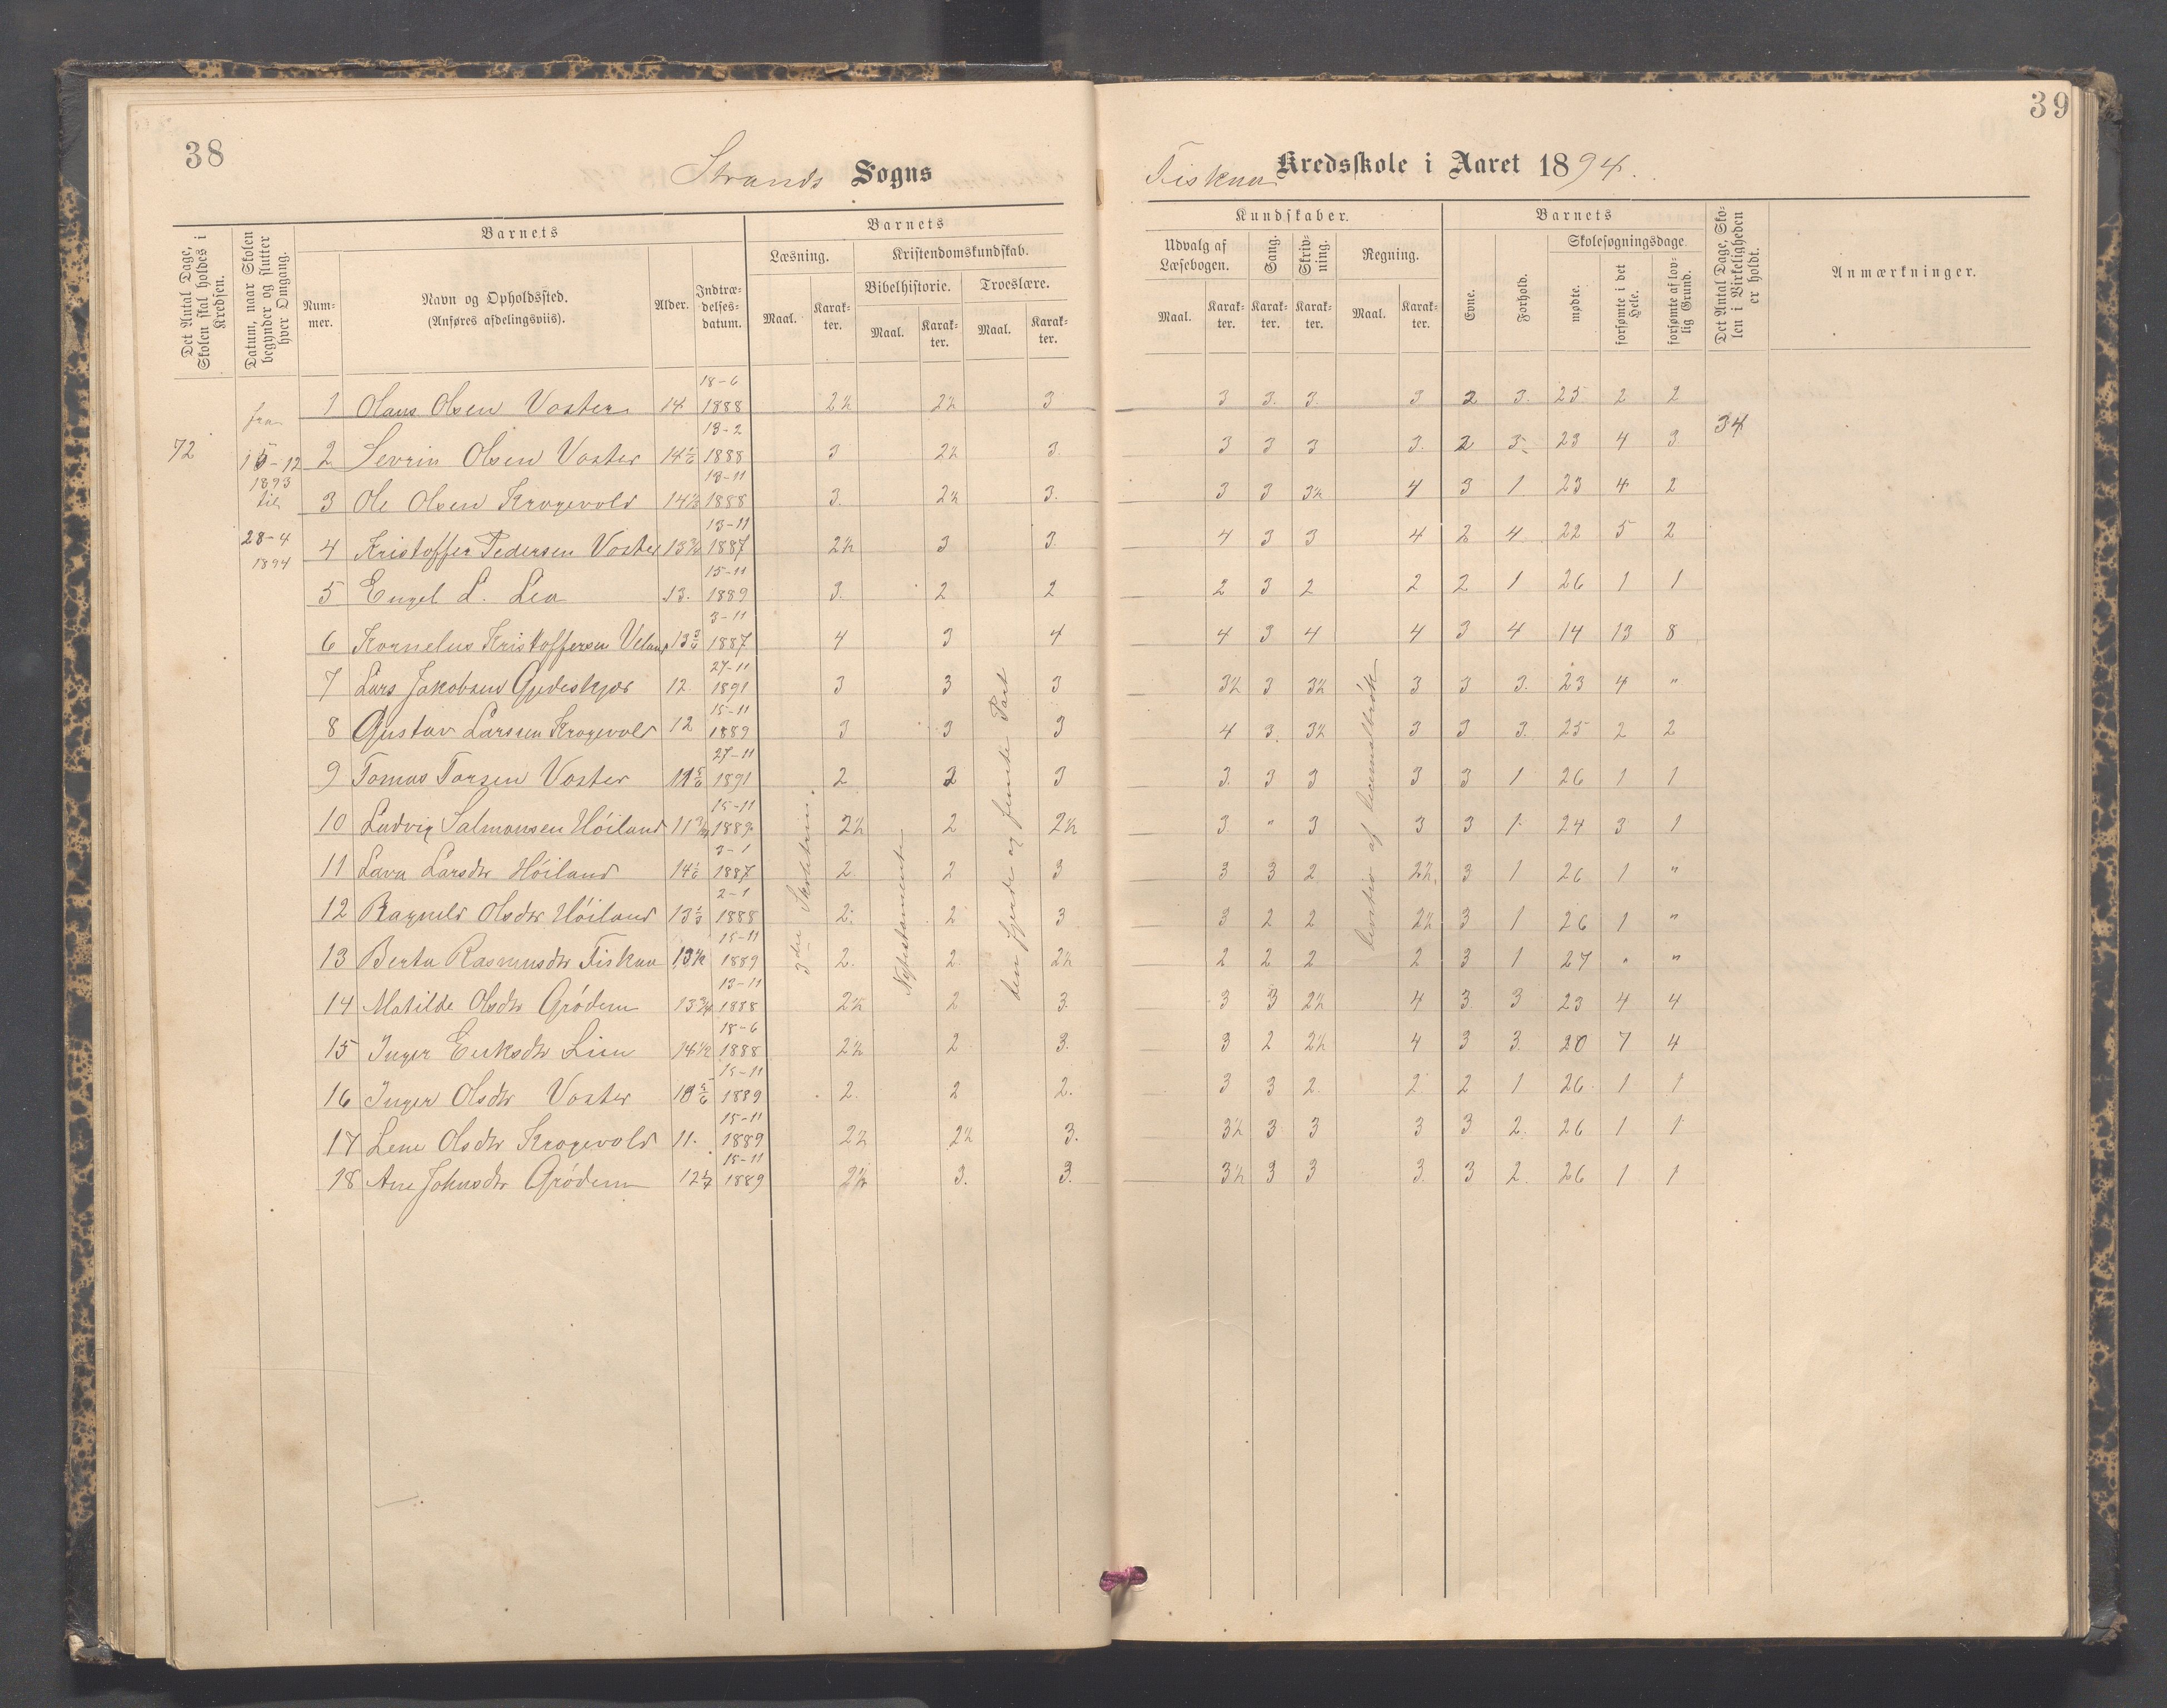 38
Strands Sogns
Det Antal Dage, Skolen skal holdes i Kredsen.
Datum, naar Skolen begynder og slutter hver Omgang.
Barnets
Num-mer.
Navn og Opholdssted.
(Anføres afdelingsviis).
Alder.
Indtræ-delses-datum.
Barnets
Læsning.
Kristendomskundskab.
Bibelhistorie. Troeslære.
Maal. Karak-ter. Maal. Karak-ter. Maal. Karak-ter.
72
fra
15-12
1893
til
28-4
1894
1 Olaus Olsen Voster 14 18-6 1888 2½ 2½ 3
2 Sevrin Olsen Voster 14 13-2 1888 3 2½ 3.
3 Ole Olsen Krogevold 14½ 13-11 1888 3. 2½ 3.
4 Kristoffer Pedersen Voster 13¾ 13-11 1887 2½ 3 3
5 Engel L. Lea 13. 15-11 1889 3. 2 2
6 Kornelus Kristoffersen Veland 13 3-11 1887 4 3 4
7 Lars Jakobsen Gjedeskjær 12. 27-11 1891 3 3 3
8 Gustav Larssen Krogevold 12 15-11 1889 3 3 3
9 Tomas Torsen Voster 11 5/6 27-11 1891 2 2 3
10 Ludvig Salmonsen Höiland 11¾ 15-11 1889 2½ 2 2½
11 Lava Larsdtr Höiland 14 1/6 3-1 1887 2 2 3
12 Ragnild Olsdtr Höiland 13 1/3 2-1 1888 2. 2 3
13 Berta Rasmusdtr Fiskaa 13½ 15-11 1889 2. 2 2½
14 Matilde Olsdtr Grödem 13¾ 13-11 1888 2½ 2 3.
15 Inger Eriksdtr Lien 14½ 18-6 1888 2½ 2 3.
16 Inger Olsdtr Voster 10 5/6 15-11 1889 2. 2 2.
17 Lene Olsdtr Krogevold 11. 15-11 1889 2½ 2½ 3.
18 Ane Johnsdtr Grödem 12 15-11 1889 2½ 3. 3.
3die Skoletrin.
Nytestamente
den fjerde og femte Part
39
Fiskaa Kredsskole i Aaret 1894.
Kundskaber.
Udvalg af Læsebogen. Sang. Skriv-ning. Regning.
Maal. Karak-ter. Karak-ter. Karak-ter. Maal. Karak-ter.
Barnets
Evne. Forhold.
Skolesøgningsdage
mødte. forsømte i det Hele. forsømte af lov-lig Grund.
Det Antal Dage, Sko-len i Virkeligheden er holdt.
Anmærkninger.
3 3. 3. 3 2 3. 25 2 2
34
3 3 3 3. 2 3. 23 4 3
3 3 3½ 4 3 1 23 4 2
4 3 3 4 2 4 22 5 2
2 3 2 2 2 1 26 1 1
4 3 4 4 3 4 14 13 8
3½ 3 3½ 3 3 3. 23 4 "
4 3. 3½ 3 3 3. 25 2 2
3. 3 3 3 3 1 26 1 1
3 " 3 3 3 1 24 3 1
3 3 2 2½ 3 1 26 1 "
3 2 2 2½ 3 1 26 1 "
2 2 2 2 3 1 27 " "
3 3 2½ 4 3. 3 23 4 4
3 2 2½ 4 3 3 20 7 4
3 3 2 2 2 1 26 1 1
3½ 3 3 3 3 2. 26 1 1
3½ 3 3 3. 3 2. 26 1 1
af Decimalbrök